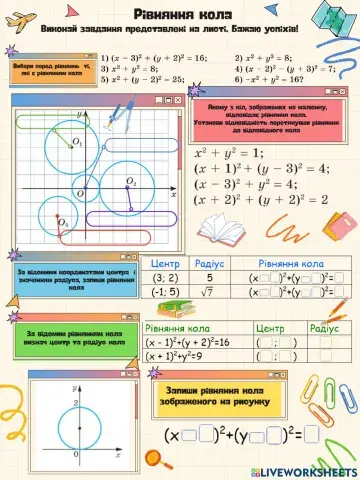 Рівняння кола
Виконай завдання представлені на листі. Бажаю успіхів!
Вибери серед рівнянь ті, які є рівнянням кола
1) (x − 3)² + (y + 2)² = 16;
2) x³ + y³ = 8;
3) x² + y² = 8;
4) (x − 2)² − (y + 3)² = 7;
5) x² + (y − 2)² = 25;
6) −x² + y² = 16?
y
O₁
O
O₂
x
O₃
Якому з кіл, зображених на малюнку, відповідає рівняння кола.
Установи відповідність перетягнувши рівняння до відповідного кола
x² + y² = 1;
(x + 1)² + (y − 3)² = 4;
(x − 3)² + y² = 4;
(x + 2)² + (y + 2)² = 2
За відомими координатами центра і значенням радіуса, запиши рівняння кола
Центр Радіус Рівняння кола
(3; 2) 5 (x )²+(y )²=
(-1; 5) √7 (x )²+(y )²=
За відомим рівнянням кола визнач центр та радіус кола
Рівняння кола Центр Радіус
(x - 1)²+(y + 2)²=16 ( ; )
(x + 1)²+y²=9 ( ; )
y
2
x
Запиши рівняння кола зображеного на рисунку
(x )²+(y )²=
LIVEWORKSHEETS